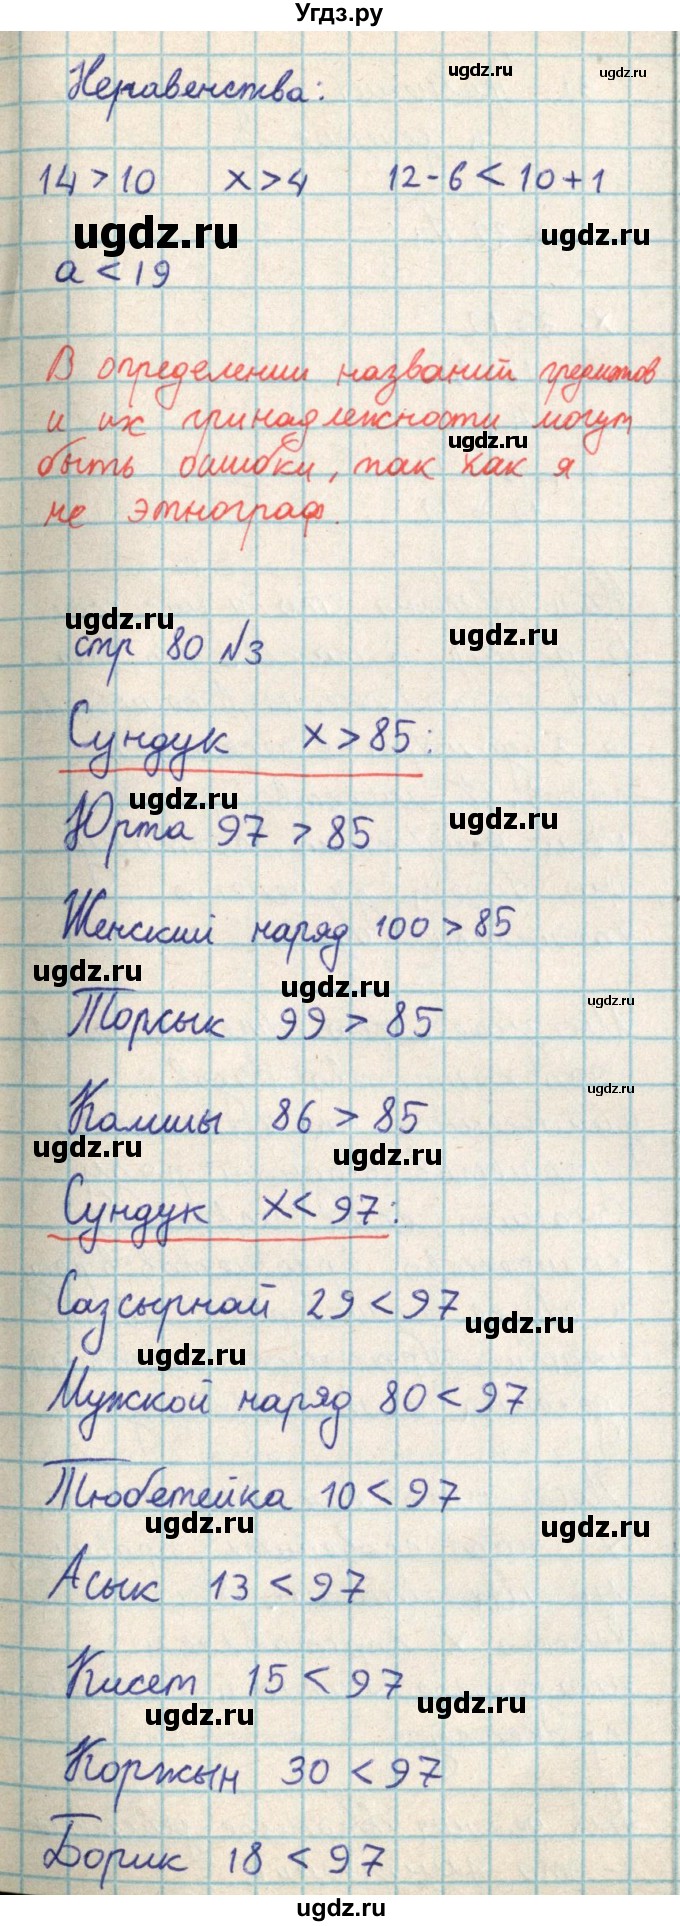 Угдз.ру
Неравенства:
ugdz.ru ugdz.ru
14 > 10 x > 4 12 - 6 < 10 + 1
ugdz.ru ugdz.ru
a < 19
В определении названий предметов
и их принадлежности могут
ugdz.ru
быть ошибки, так как я
не этнограф.
ugdz.ru ugdz.ru
стр 80 №3
Сундук x > 85:
ugdz.ru ugdz.ru
Юрта 97 > 85
Женский наряд 100 > 85
ugdz.ru ugdz.ru ugdz.ru
Торсык 99 > 85
ugdz.ru
Камшы 86 > 85
ugdz.ru ugdz.ru
Сундук x < 97:
Сазсырнай 29 < 97
ugdz.ru ugdz.ru
Мужской наряд 80 < 97
Тюбетейка 10 < 97
ugdz.ru ugdz.ru
Асык 13 < 97
Кисет 15 < 97
ugdz.ru ugdz.ru
Коржын 30 < 97
Борик 18 < 97
ugdz.ru